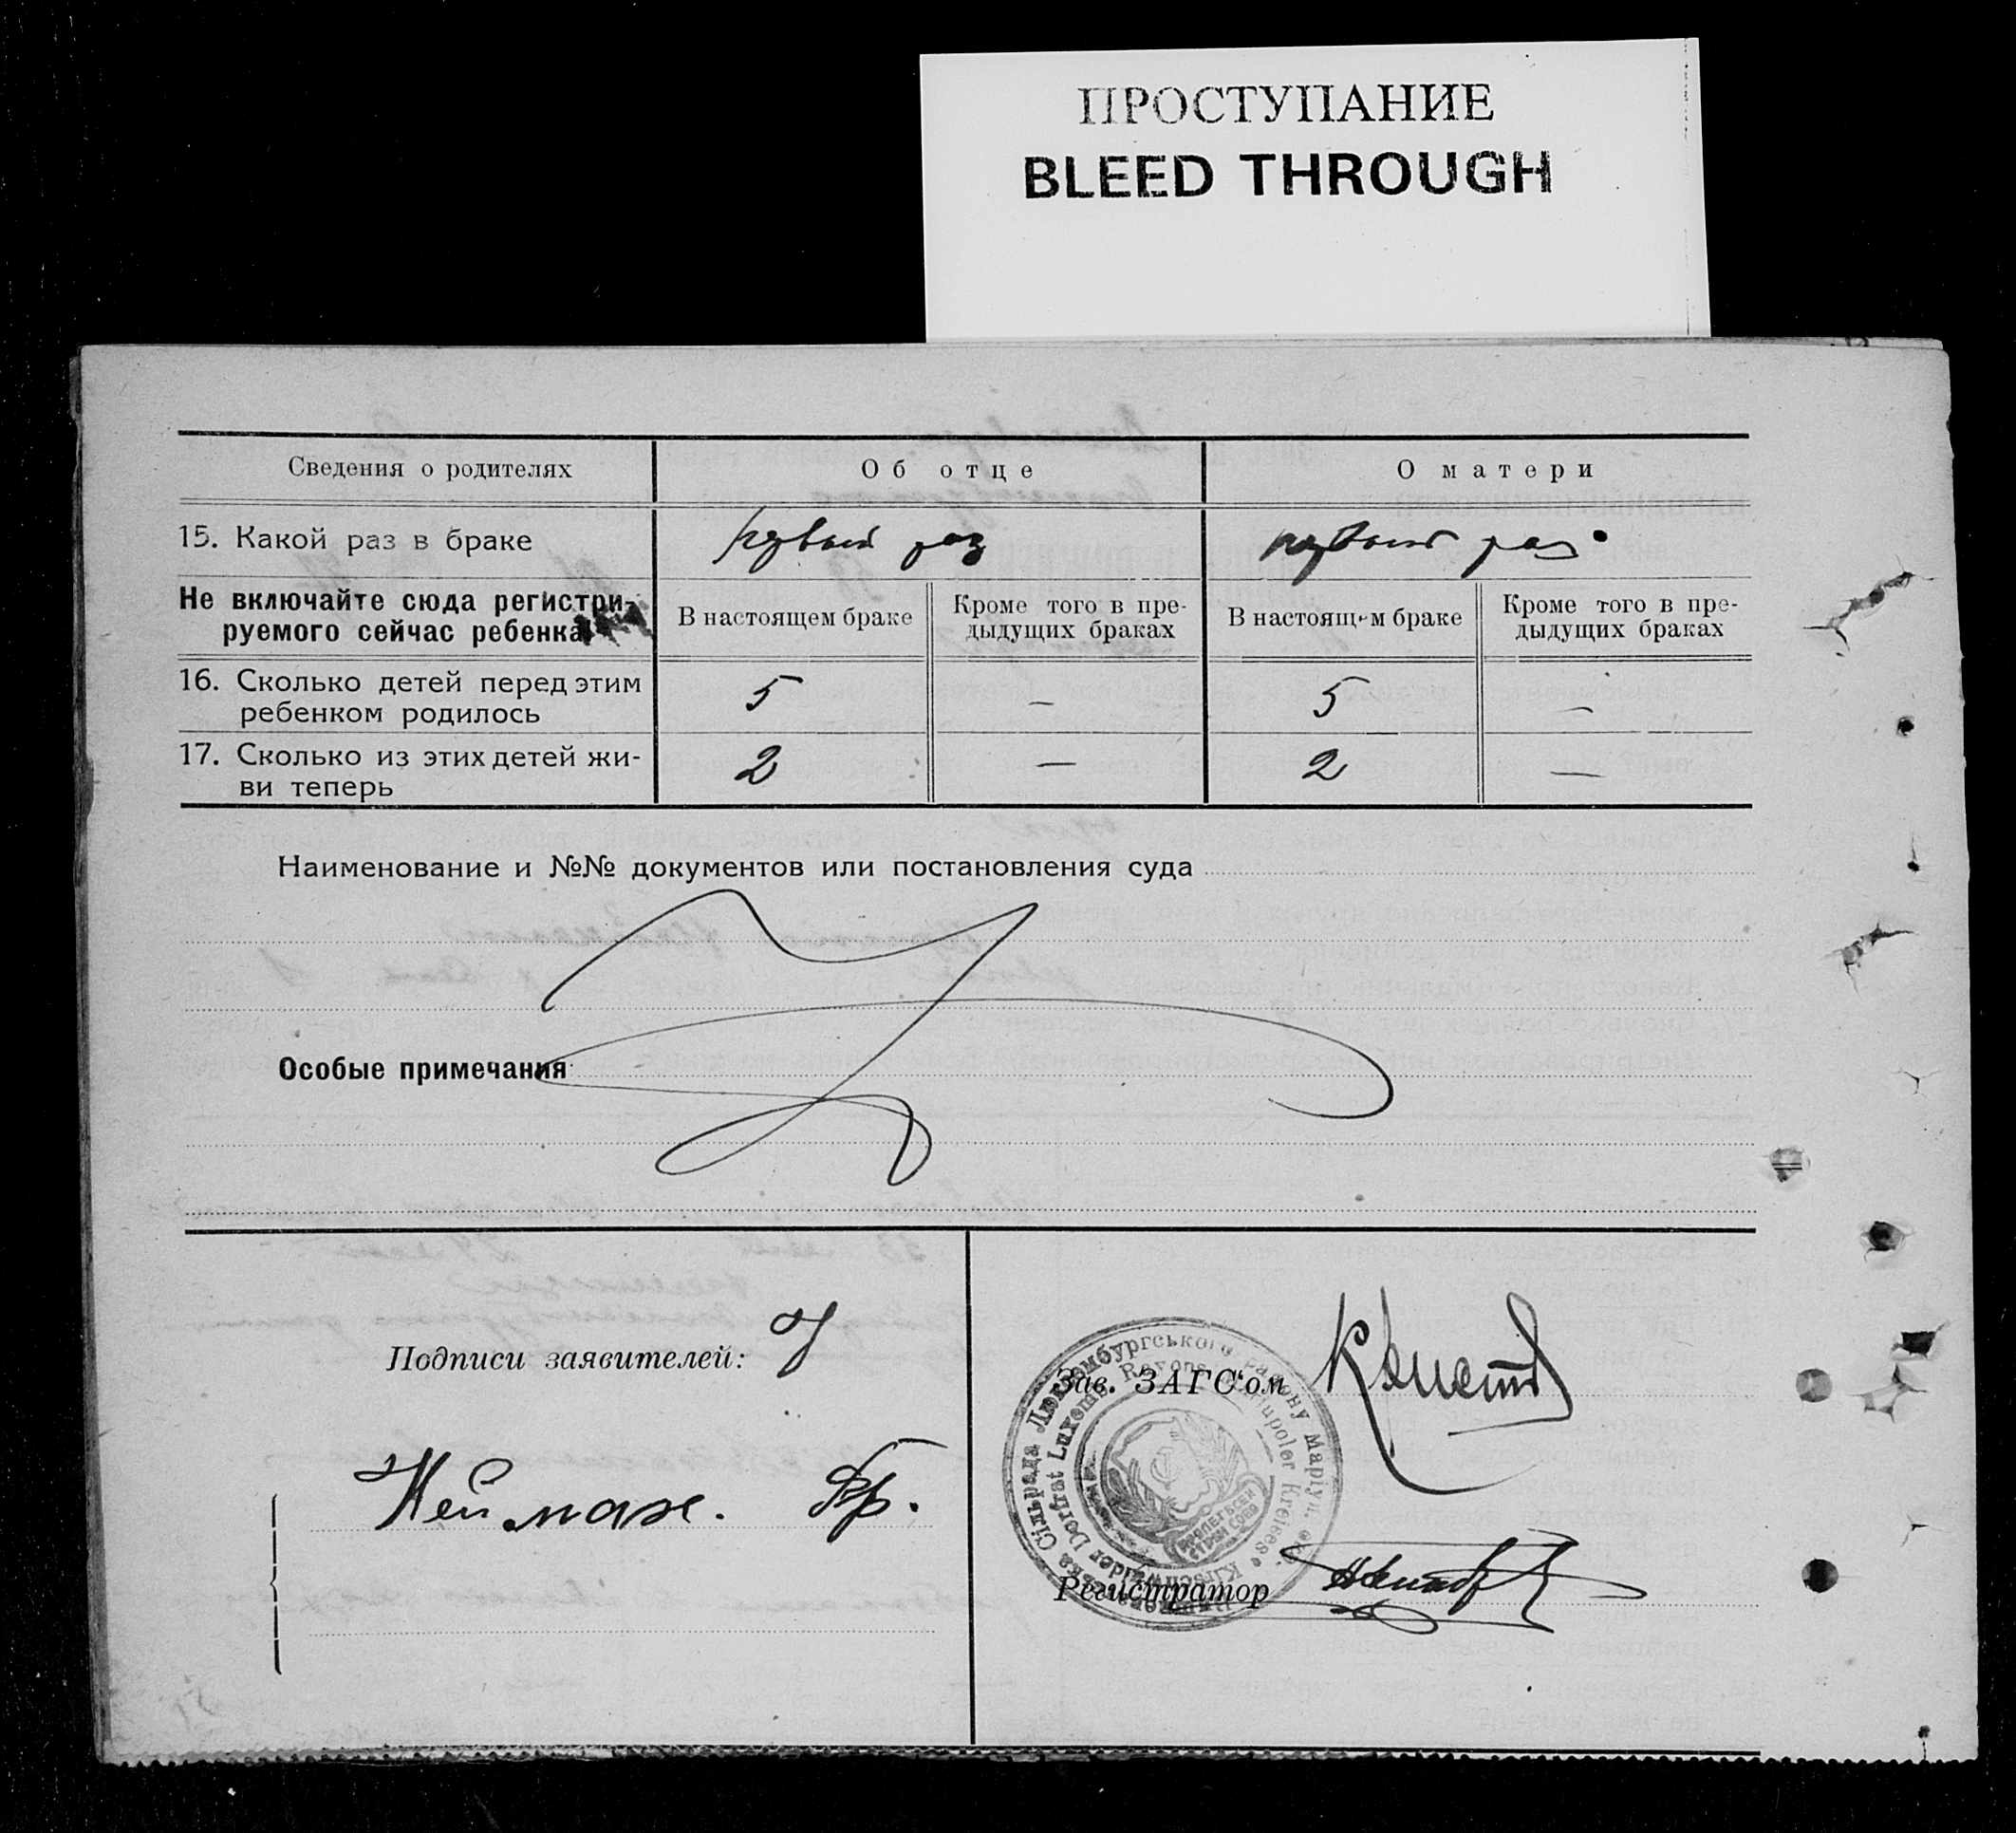 ПРОСТУПАНИЕ
BLEED THROUGH
Сведения о родителях
Об отце
О матери
15. Какой раз в браке
первый раз
первый раз
Не включайте сюда регистри-
руемого сейчас ребенка
В настоящем браке
Кроме того в пре-
дыдущих браках
В настоящем браке
Кроме того в пре-
дыдущих браках
16. Сколько детей перед этим
ребенком родилось
5
—
5
—
17. Сколько из этих детей жи-
ви теперь
2
—
2
—
Наименование и №№ документов или постановления суда
Особые примечания
Подписи заявителей:
Нейман. Фр.
Зав. ЗАГС'ом
Регистратор
Сільрада Люксембургського району Маріуп.
Dorfrat Luxemb. Rayons Mariupoler Kreises